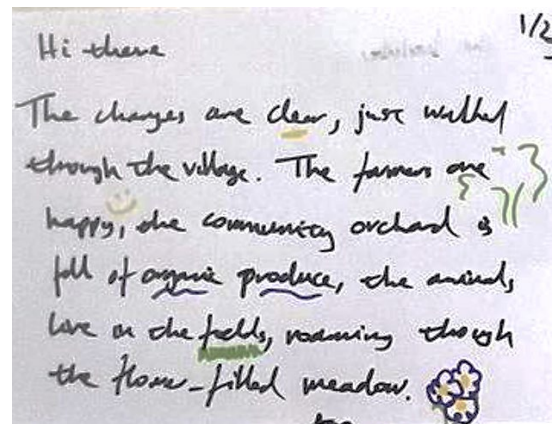 1/2
Hi there
The changes are clear, just walked
through the village. The farmers are
happy, the community orchard is
full of organic produce, the animals
live in the fields, roaming though
the flower-filled meadow.